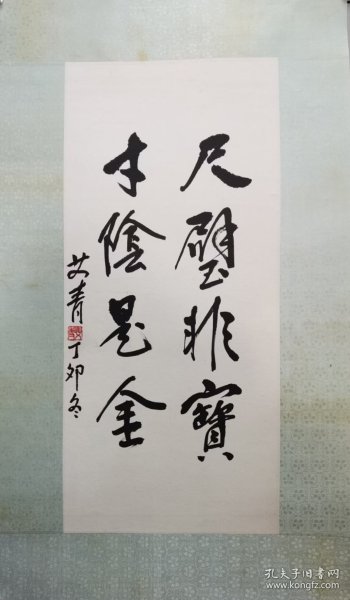 尺璧非寶
寸陰是金
艾青
丁卯冬
孔夫子旧书网
www.kongfz.com